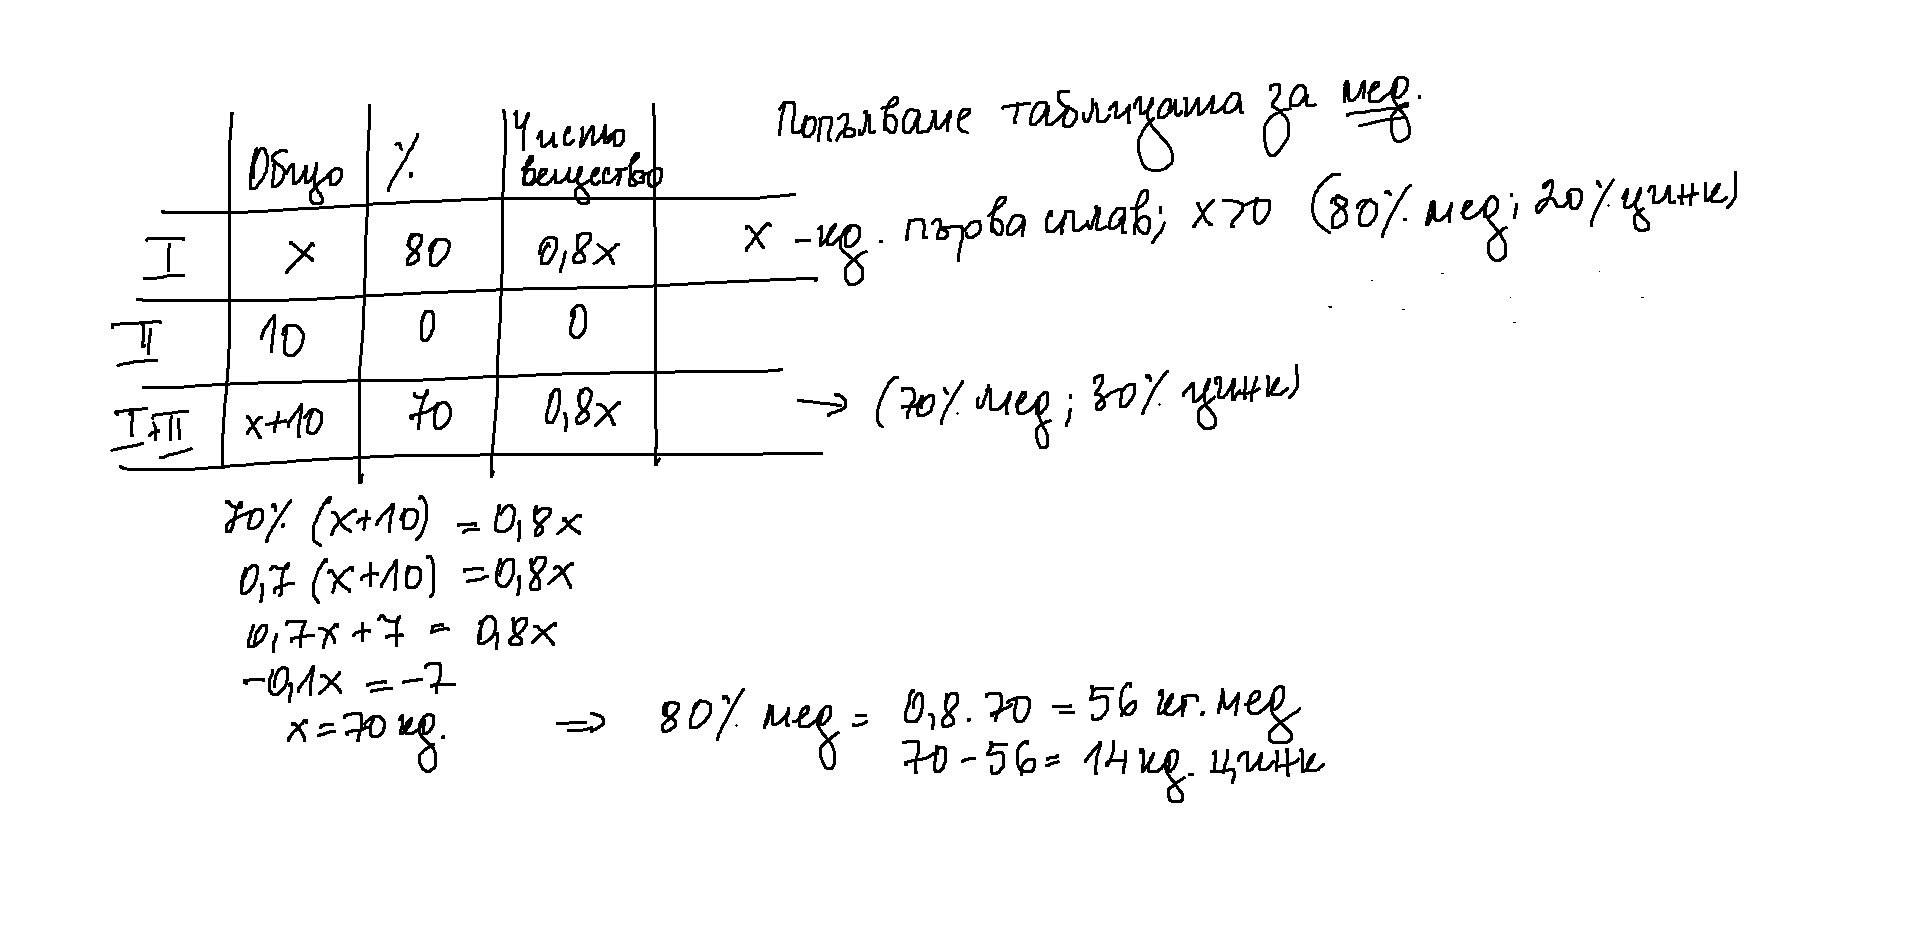 Попълваме таблицата за мед.
Общо % Чисто вещество
I x 80 0,8x
x - кg. първа сплав; x>0 (80% мед; 20% цинк)
II 10 0 0
I+II x+10 70 0,8x → (70% мед; 30% цинк)
70% (x+10) = 0,8x
0,7 (x+10) = 0,8x
0,7x+7 = 0,8x
-0,1x = -7
x = 70 кg. ⇒ 80% мед = 0,8.70 = 56 кг. мед
70-56 = 14 кg. цинк